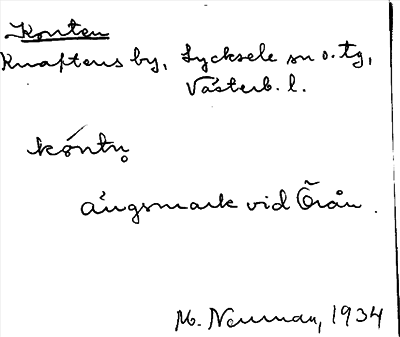 Konten
Knaftens by, Lycksele sn o. tg,
Västerb. l.
kǿntn̥
ängsmark vid Örån.
M. Neuman, 1934